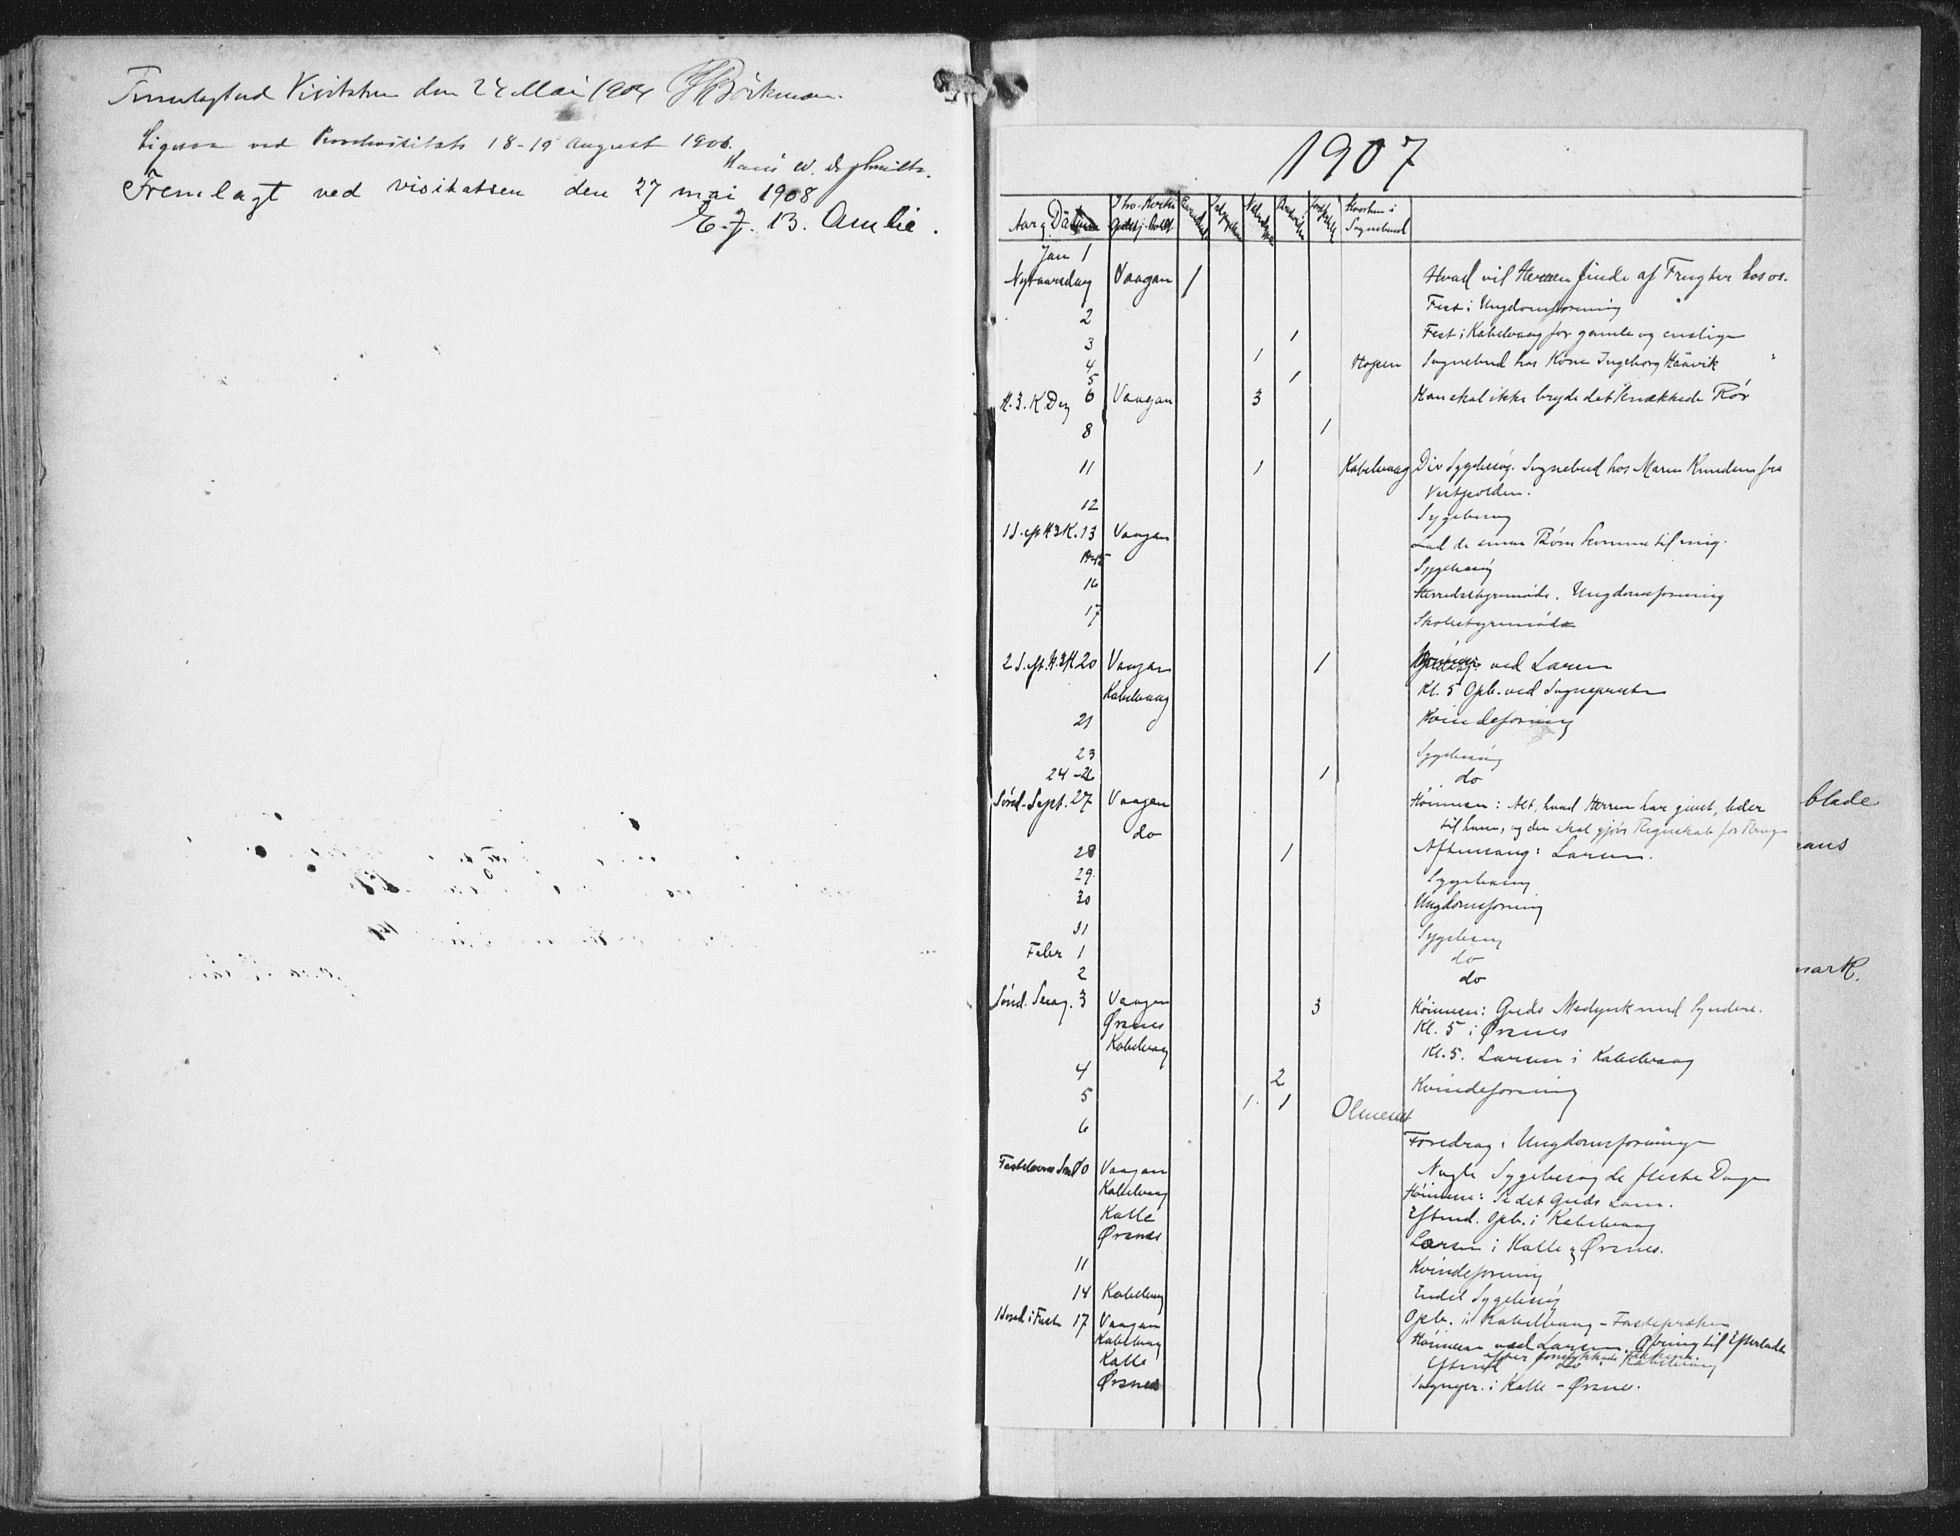 Fremlagt ved Visitatsen den 24 Mai 1904
Ligesaa ved 18-19 August 1906.
Hans
Fremlagt ved visitatsen den 27 mai 1908
E. J. B. Amlie.
1907
Aar og Datum
Sognebud
Jan 1
Nytaarsdag Vaagan 1 Hvad vil Herren finde af Frugter hos os.
2 Fest i Ungdomsforening
3 1 Fest i Kabelvaag for gamle og enslige
4 1 Hopen Sognebud hos Kone Ingeborg Haavik
5 1
H. 3. K Dag 6 Vaagan 3 Han skal ikke bryde det knækkede Rør
8 1
11 1 Kabelvaag Div Sygebesøg. Sognebud hos Maren Knudsen fra
Vestfjorden.
12 Sygebesøg
1 S. eft H3K. 13 Vaagan lad de smaa Børn komme til mig.
14-15 Sygebesøg
16 Herredsstyremøde. Ungdomsforening
17 Skolestyremøde
2 S. eft. H. 3K 20 Vaagan 1 ved Larsen
Kabelvaag Kl. 5 Opb. ved Sognepresten
21 Kvindeforening
23 Sygebesøg
24-26 1 do
Sønd. Sept. 27 Vaagan Høimesse: Alt, hvad Herren har givet, leder
do til ham, og der skal gjøres Regnskab for
blade
28 1 Aftensang: Larsen.
ans
29. Sygebesøg
30 Ungdomsforening
31 Sygebesøg
Febr 1 do
2 do
mark.
Sønd. Sexag. 3 Vaagan 3 Høimesse: Guds Medynk med Syndere.
Ørsnes Kl. 5 i Ørsnes
Kabelvaag Kl. 5. Larsen i Kabelvaag
4 2 Kvindeforening
5 1. 1
6 Foredrag i Ungdomsforening
Fastelavns Sønd 10 Vaagan Nogle Sygebesøg de fleste Dage
Kabelvaag Høimesse: Se det Guds Lam.
Kalle Eftmd. Opb. i Kabelvaag
Ørsnes Larsen i Kalle og Ørsnes.
11 Kvindeforening
14 Kabelvaag Endel Sygebesøg
1 Sønd i Faste 17 Vaagan Opb. i Kabelvaag - Fasteprædken
Kabelvaag Høimesse ved Larsen. Ofring til
Kalle Eftmd do i Kabelvaag
Ørsnes Sognepr. i Kalle - Ørsnes.